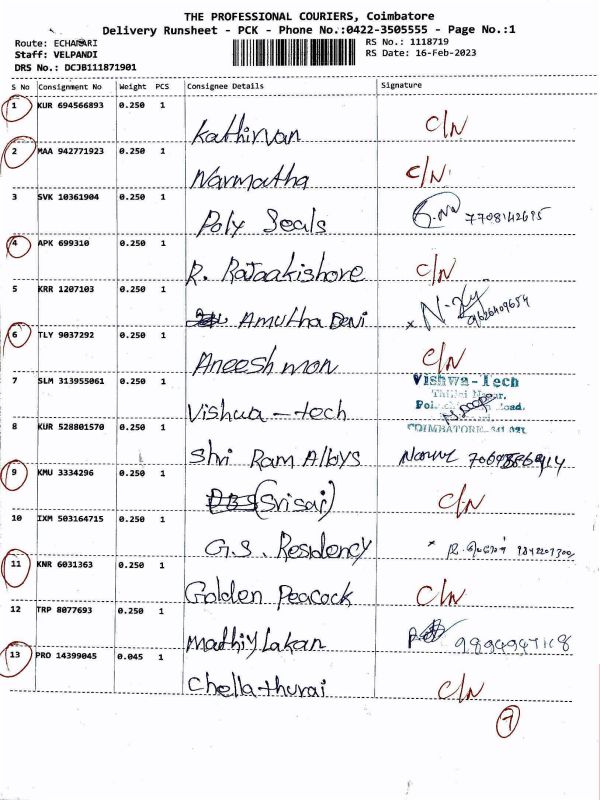 THE PROFESSIONAL COURIERS, Coimbatore
Delivery Runsheet - PCK - Phone No.:0422-3505555 - Page No.:1
Route: ECHANARI
Staff: VELPANDI
DRS No.: DCJB111871901
RS No.: 1118719
RS Date: 16-Feb-2023
S No Consignment No Weight PCS Consignee Details Signature
1 KUR 694566893 0.250 1 Kathirvan C/N
2 MAA 942771923 0.250 1 Narmatha C/N
3 SVK 10361904 0.250 1 Poly Seals 7708142695
4 APK 699310 0.250 1 R. Rajaakishore C/N
5 KRR 1207103 0.250 1 Amutha Devi x
6 TLY 9037292 0.250 1 Aneesh mon C/N
7 SLM 313955061 0.250 1 Vishwa - tech Vishwa-Tech
COIMBATORE
8 KUR 528801570 0.250 1 Shri Ram Alloys
9 KMU 3334296 0.250 1 (Srisai) C/N
10 IXM 503164715 0.250 1 G.S. Residency x
11 KNR 6031363 0.250 1 Golden Peacock C/N
12 TRP 8077693 0.250 1 Madhiylakan
13 PRO 14399045 0.045 1 Chellathurai C/N
7